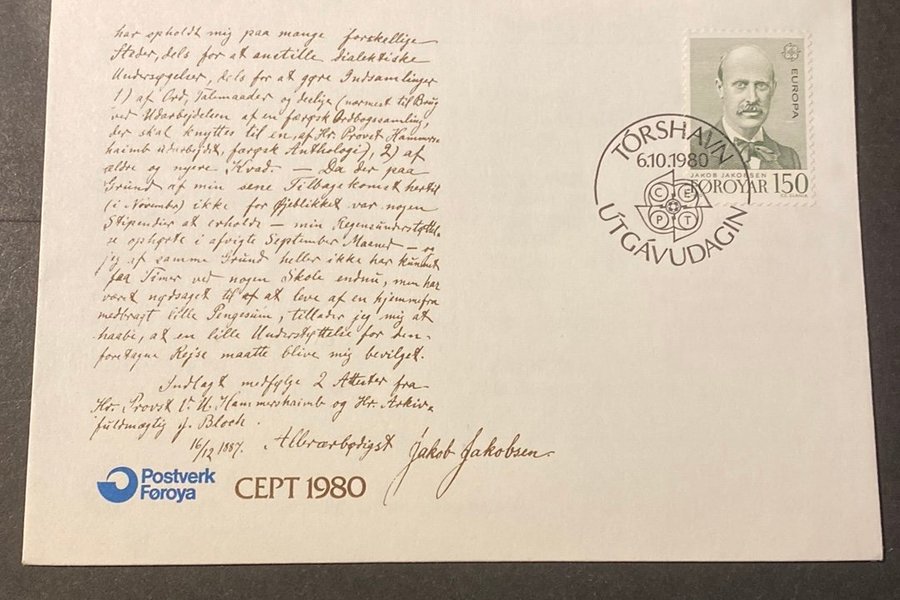 har opholdt mig paa mange forskellige
Steder, dels for at anstille dialektiske
Undersøgelser, dels for at gøre Indsamlinger
1) af Ord, Talemaader og deslige (nærmest til Brug
ved Udarbejdelsen af en færøsk Ordbogssamling,
der skal knyttes til en, af Hr. Provst Hammers-
haimb udarbejdet, færøsk Anthologi), 2) af
ældre og nyere Kvad. — Da der paa
Grund af min sene Tilbagekomst hertil
(i November) ikke for Øjeblikket var nogen
Stipendier at erholde — min Regensunderstøttel-
se ophørte i afvigte September Maaned — og
jeg af samme Grund heller ikke har kunnet
faa Timer ved nogen Skole endnu, men har
været nødsaget til at leve af en hjemmefra
medbragt lille Pengesum, tillader jeg mig at
haabe, at en lille Understøttelse for den
foretagne Rejse maatte blive mig bevilget.
Indlagt medfølge 2 Attester fra
Hr. Provst V. U. Hammershaimb og Hr. Arkiv-
fuldmægtig J. Bloch.
16/12 1887. Allerærbødigst Jakob Jakobsen.
Postverk
Føroya
CEPT 1980
EUROPA
JAKOB JAKOBSEN
FØROYAR 150
TÓRSHAVN
6.10.1980
CEPT
ÚTGÁVUDAGIN